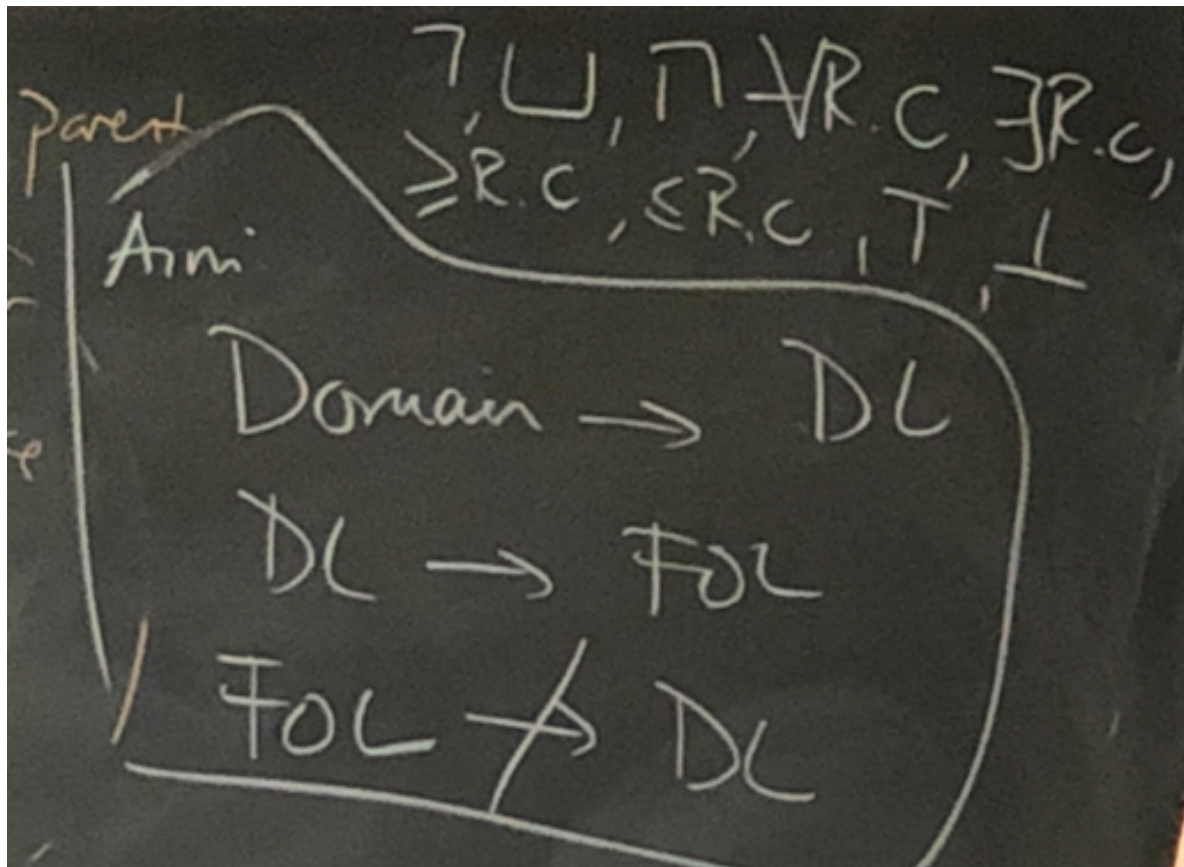 ¬, ⊔, ⊓, ∀R.C, ∃R.C,
≥R.C, ≤R.C, ⊤, ⊥
Parent
Aim:
Domain → DL
DL → FOL
FOL ↛ DL